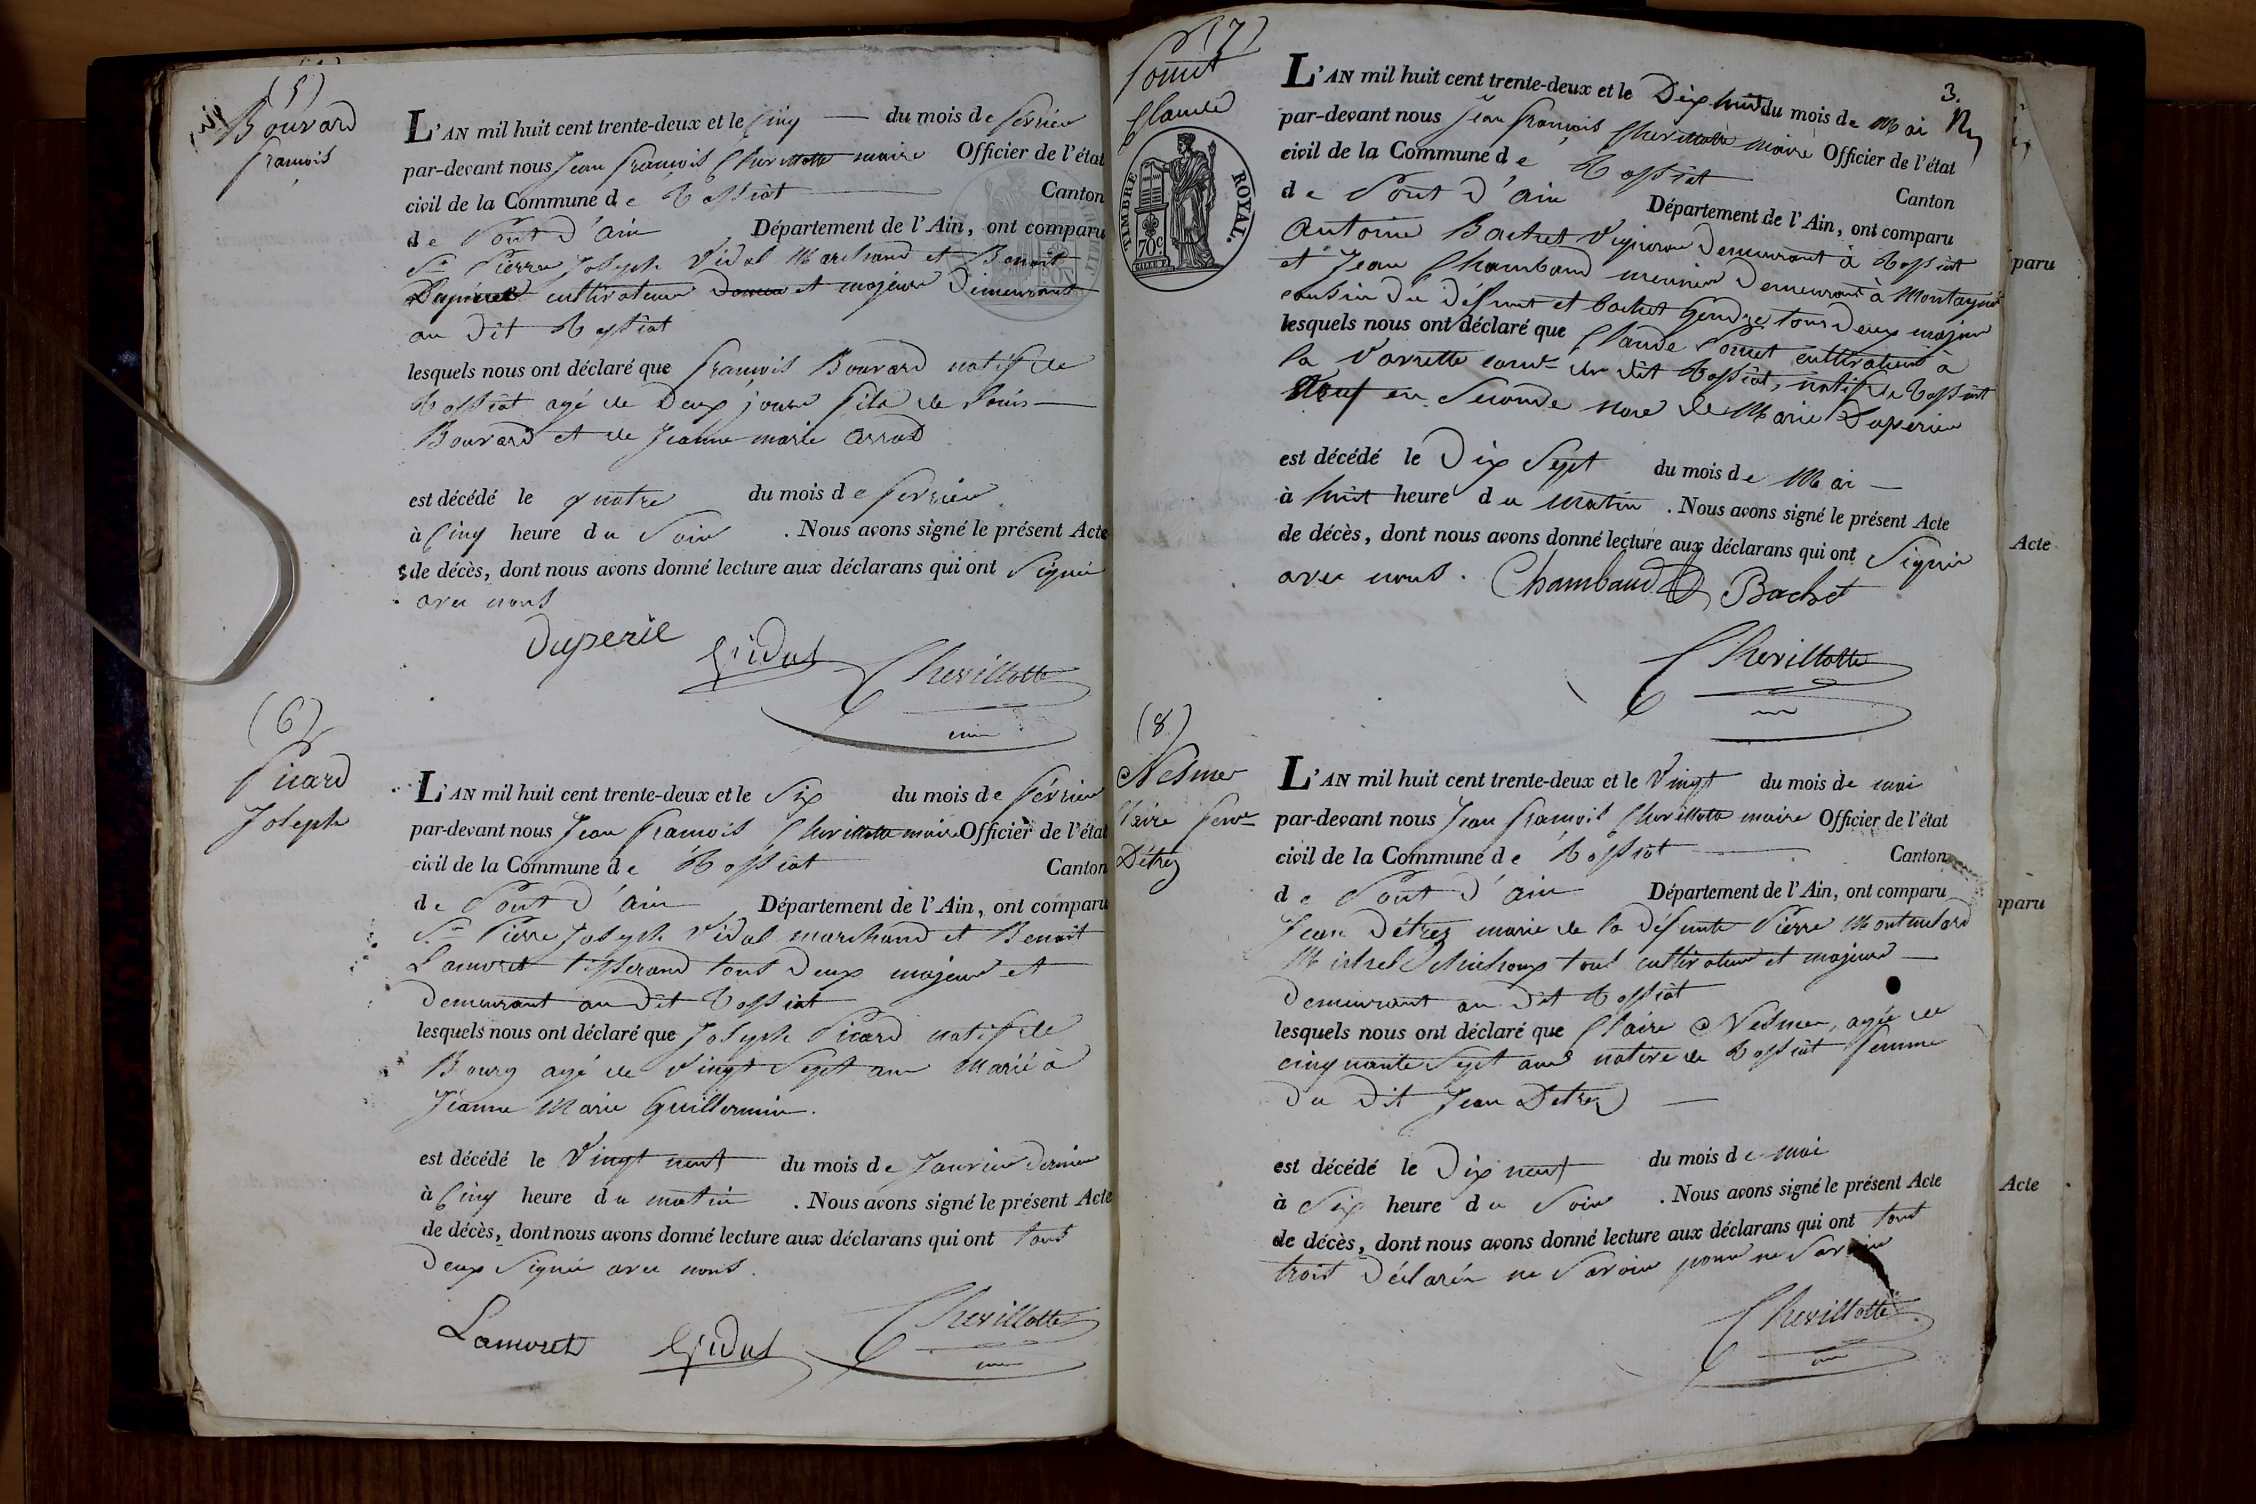 (5)
Bouvard
françois
L'AN mil huit cent trente-deux et le cinq du mois de février
par-devant nous Jean françois Chevillotte maire Officier de l'état
civil de la Commune de Tossiat Canton
de Pont d'ain Département de l'Ain, ont comparu
Sr Pierre Joseph Vidal Marchand et Benoit
Duperret cultivateur et majeur demeurant
au dit Tossiat
lesquels nous ont déclaré que françois Bouvard natif de
Tossiat agé de deux jours fils de Louis
Bouvard et de Jeanne marie
est décédé le quatre du mois de fevrier
à cinq heure du Soir . Nous avons signé le présent Acte
de décès, dont nous avons donné lecture aux déclarans qui ont Signé
avec nous
Duperil Vidal Chevillotte
(6)
Picard
Joseph
L'AN mil huit cent trente-deux et le Six du mois de février
par-devant nous Jean françois Chevillotte maire Officier de l'état
civil de la Commune de Tossiat Canton
de Pont d'ain Département de l'Ain, ont comparu
Sr Pierre Joseph Vidal marchand et Benoit
Lamoret tisserand tous deux majeur et
demeurant au dit Tossiat
lesquels nous ont déclaré que Joseph Picard natif de
Bourg agé de vingt Sept ans Marié à
Jeanne Marie Guillermin.
est décédé le Vingt neuf du mois de Janvier dernier
à cinq heure du matin . Nous avons signé le présent Acte
de décès, dont nous avons donné lecture aux déclarans qui ont tous
deux Signé avec nous.
Lamoret Vidal Chevillotte
(7)
Pomet
Claude
TIMBRE ROYAL.
70 c.
3.
L'AN mil huit cent trente-deux et le Dix huit du mois de Mai
par-devant nous Jean françois Chevillotte maire Officier de l'état
civil de la Commune de Tossiat Canton
de Pont d'ain Département de l'Ain, ont comparu
Antoine Bachet Vigneron demeurant à Tossiat
et Jean Chambaud meunier demeurant à Montagnat
cousin du défunt et bachet Gendre, tous deux majeur
lesquels nous ont déclaré que Claude Pomet cultivateur à
la Vavrette du dit Tossiat, natif de Tossiat
Veuf en Seconde noce de Marie Duperier
est décédé le Dix Sept du mois de Mai
à huit heure du matin . Nous avons signé le présent Acte
de décès, dont nous avons donné lecture aux déclarans qui ont Signé
avec nous. Chambaud Bachet
Chevillotte
(8)
Nesmer
Claire
Détrez
L'AN mil huit cent trente-deux et le Vingt du mois de mai
par-devant nous Jean françois Chevillotte maire Officier de l'état
civil de la Commune de Tossiat Canton
de Pont d'ain Département de l'Ain, ont comparu
Jean Détrez marie de la défunte Pierre
Michel tous cultivateur et majeur
demeurant au dit Tossiat
lesquels nous ont déclaré que Claire Nesmer, agée de
cinquante Sept ans native de Tossiat femme
du dit Jean Detrez
est décédé le Dix neuf du mois de mai
à Six heure du Soir . Nous avons signé le présent Acte
de décès, dont nous avons donné lecture aux déclarans qui ont tous
trois déclaré ne Savoir
Chevillotte
paru
Acte
paru
Acte